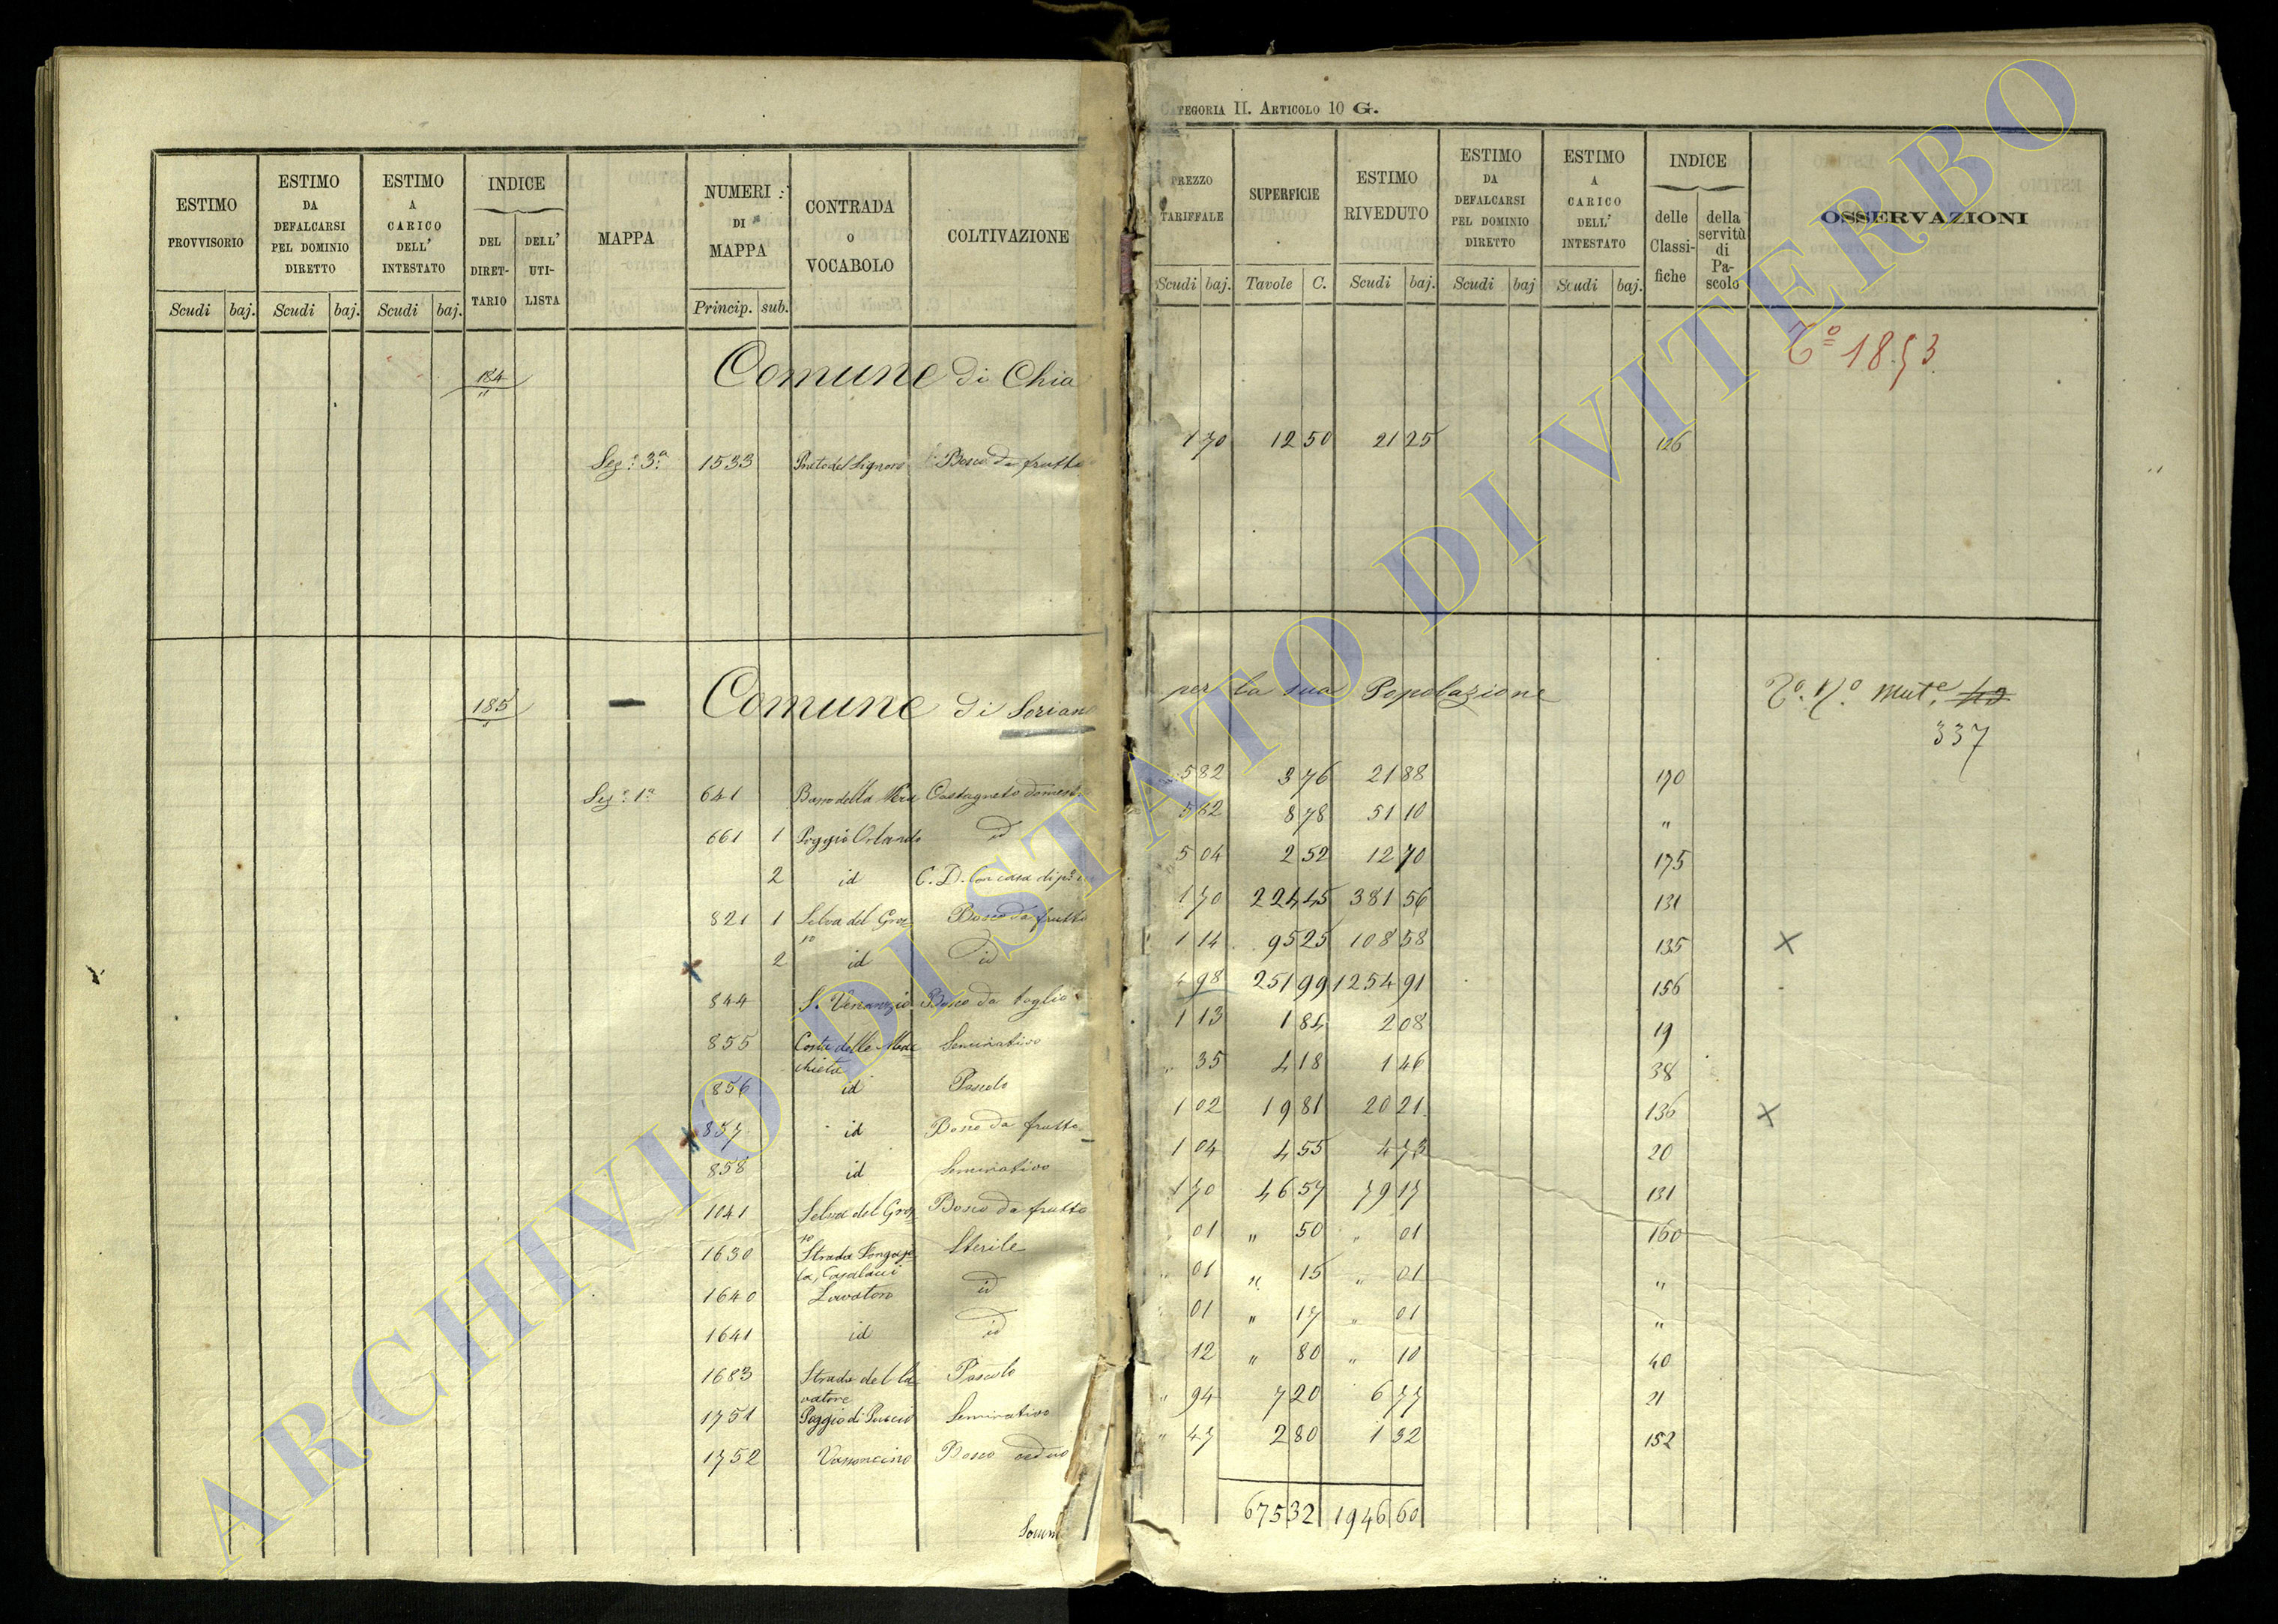 CATEGORIA II. ARTICOLO 10 G.
ESTIMO PROVVISORIO | ESTIMO DA DEFALCARSI PEL DOMINIO DIRETTO | ESTIMO A CARICO DELL' INTESTATO | INDICE DEL DIRETTARIO | DELL' UTILISTA | MAPPA | NUMERI DI MAPPA | CONTRADA O VOCABOLO | COLTIVAZIONE | PREZZO TARIFFALE | SUPERFICIE | ESTIMO RIVEDUTO | ESTIMO DA DEFALCARSI PEL DOMINIO DIRETTO | ESTIMO A CARICO DELL' INTESTATO | INDICE delle Classifiche | della servitù di Pascolo | OSSERVAZIONI
Scudi | baj. | Scudi | baj. | Scudi | baj. | Princip. | sub. | Scudi | baj. | Tavole | C. | Scudi | baj. | Scudi | baj | Scudi | baj.
184 Comune di Chia
Tº 1853
Sez.e 3a 1533 Bosco da frutto 1 70 12 50 21 25 126
185 Comune di Soriano per la sua Popolazione
Mut.e 337
Sez.e 1a 641 Castagneto domest 5 82 3 76 21 88 170
661 1 Poggio Orlando id 5 82 8 78 51 10 "
2 id C. D. Con casa di 5 04 2 52 12 70 175
821 1 Selva del Gros-so Bosco da frutto 1 70 224 45 381 56 131
2 id id 1 14 95 25 108 58 135 X
844 S. Venanzio Bosco da taglio 4 98 251 99 1254 91 156
855 Costa delle Mac-chieta Seminativo 1 13 1 84 2 08 19
856 id Pascolo " 35 4 18 1 46 38
857 id Bosco da frutto 1 02 19 81 20 21 136 X
858 id Seminativo 1 04 4 55 4 73 20
1041 Selva del Gros-so Bosco da frutto 1 70 46 57 79 17 131
1630 Strada Casalacci Sterile 01 " 50 " 01 160
1640 Lavatoro id " 01 " 15 " 01 "
1641 id id " 01 " 17 " 01 "
1683 Strada del La-vatore Pascolo 12 " 80 " 10 40
1751 Poggio di Seminativo " 94 7 20 6 77 21
1752 Bosco ceduo " 47 2 80 1 32 152
Somm 675 32 1946 60
ARCHIVIO DI STATO DI VITERBO